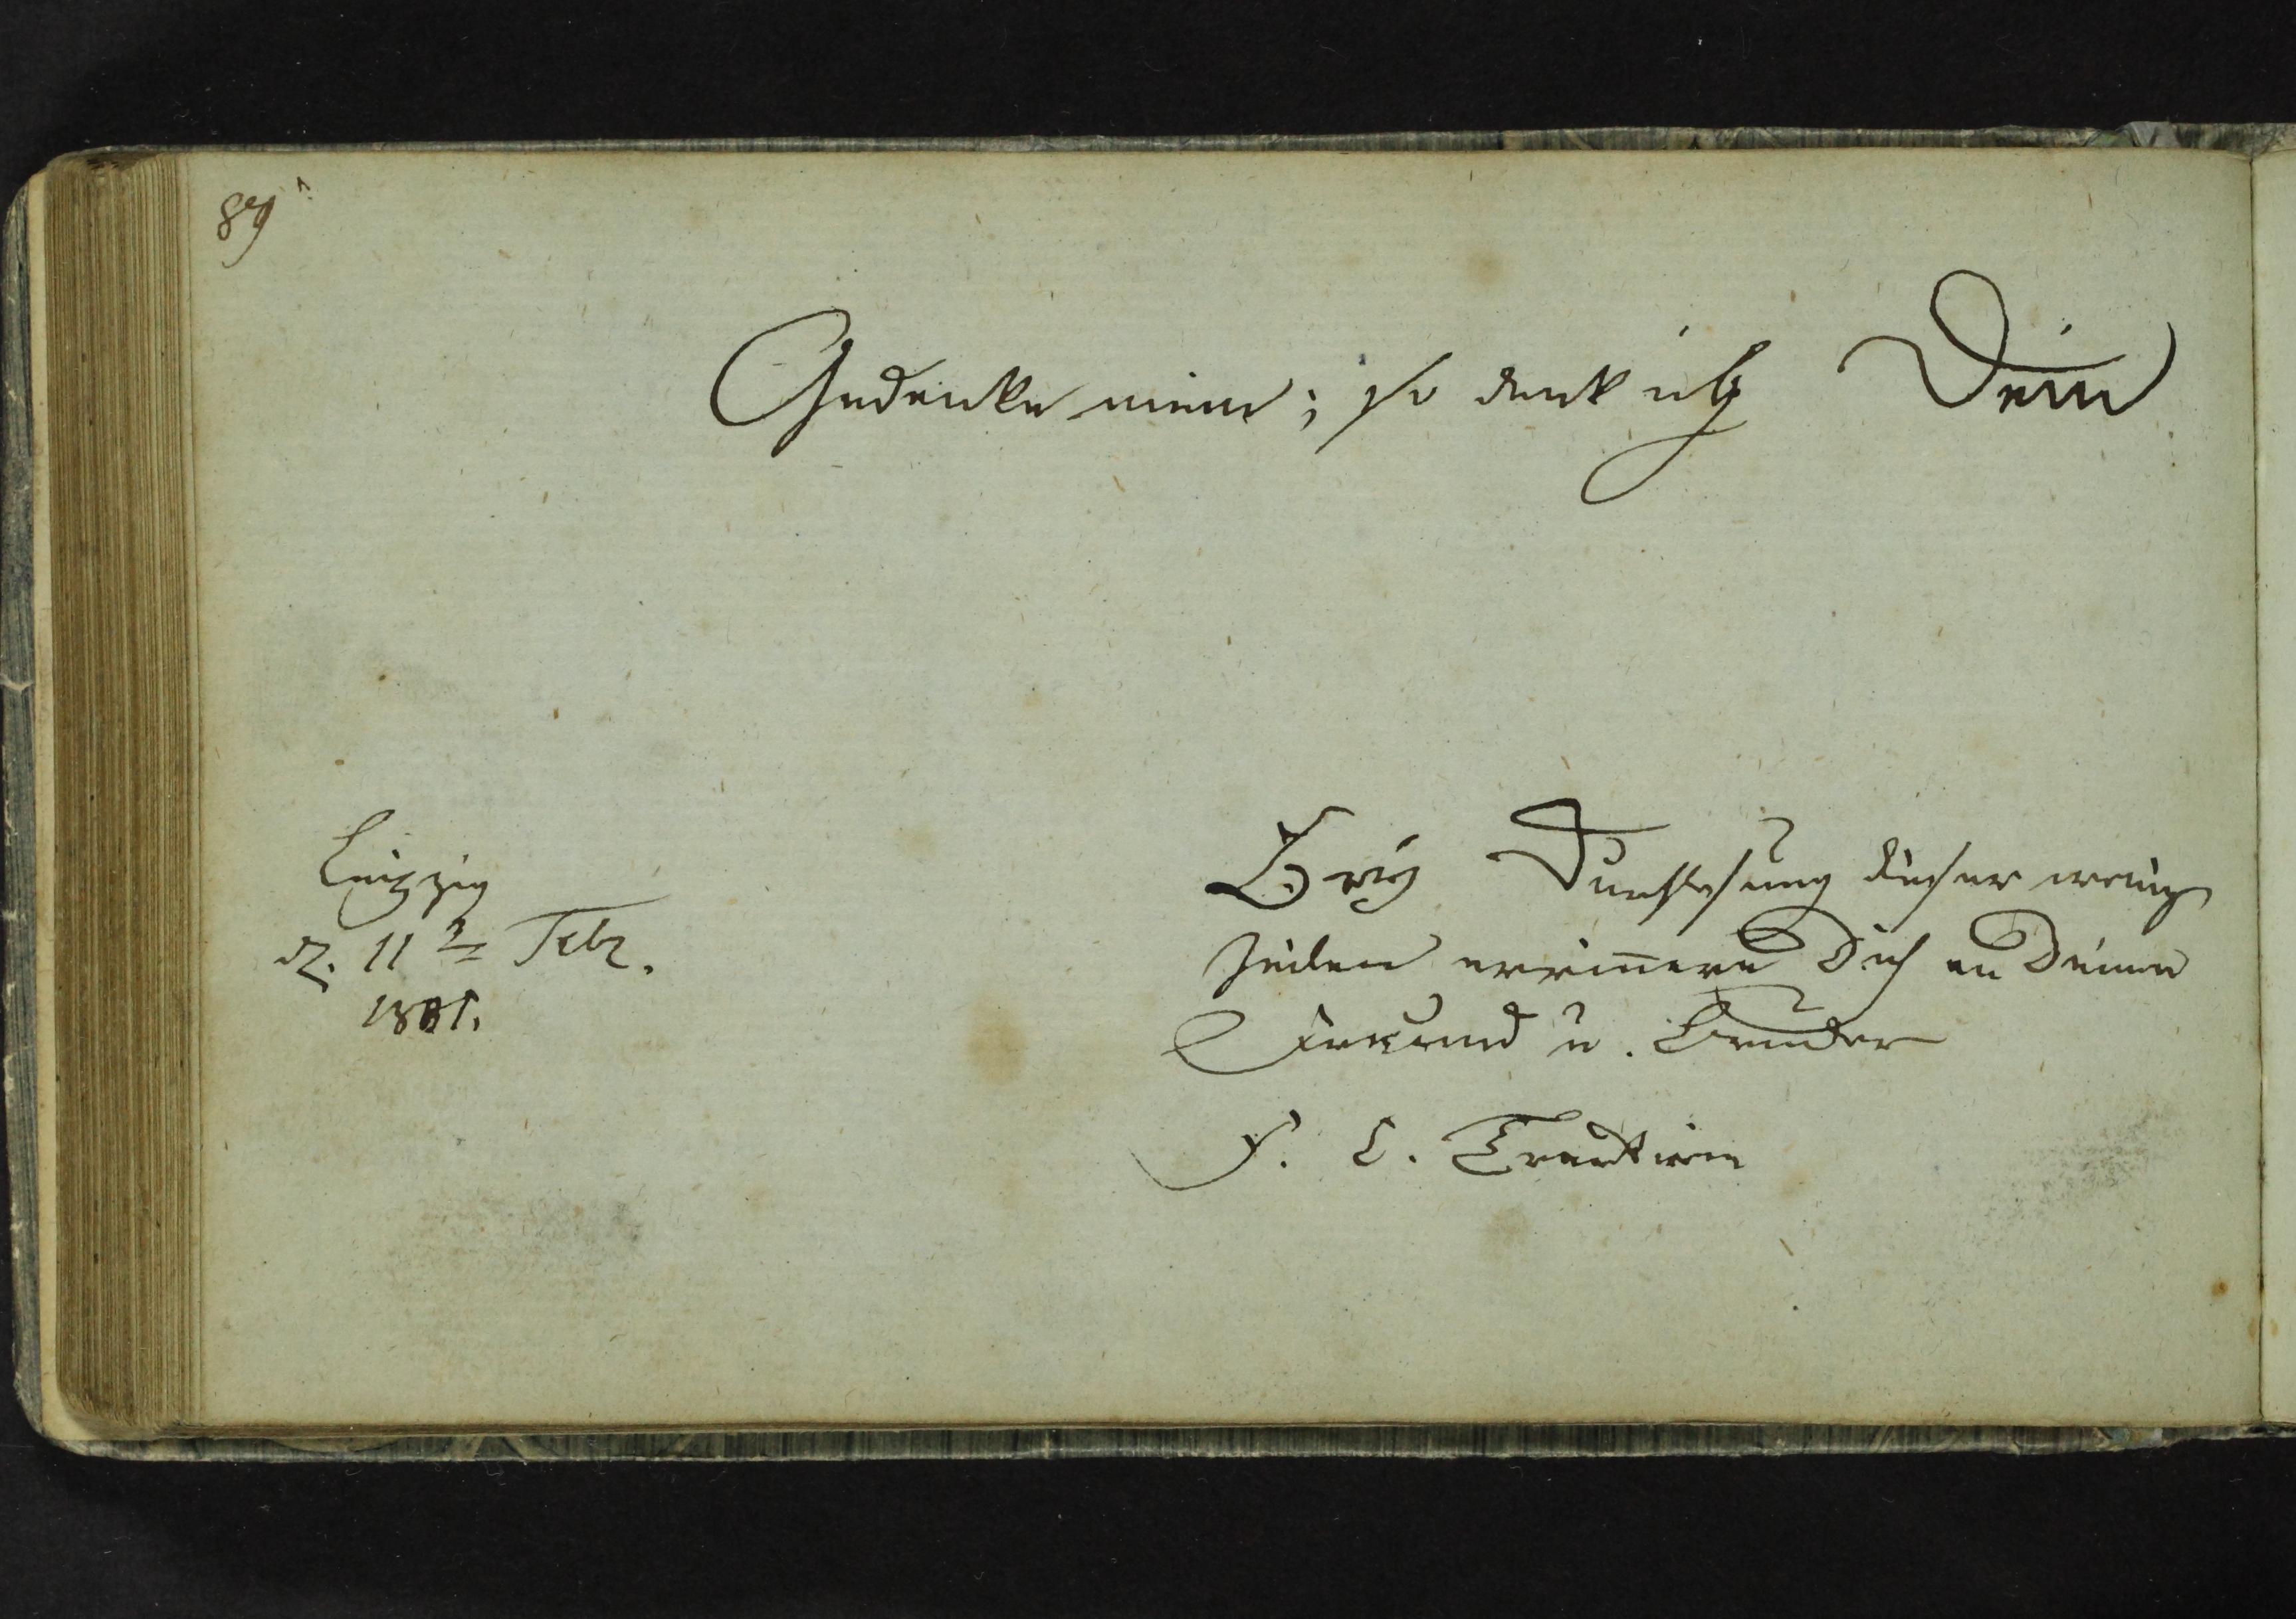 89
Gedenke mein; so denk ich Dein
Leipzig
d. 11 Febr.
1801.
Bey Durchlesung dieser wenig
Zeilen errinnere Dich an Deinen
Freund u. Bruder
F. C.